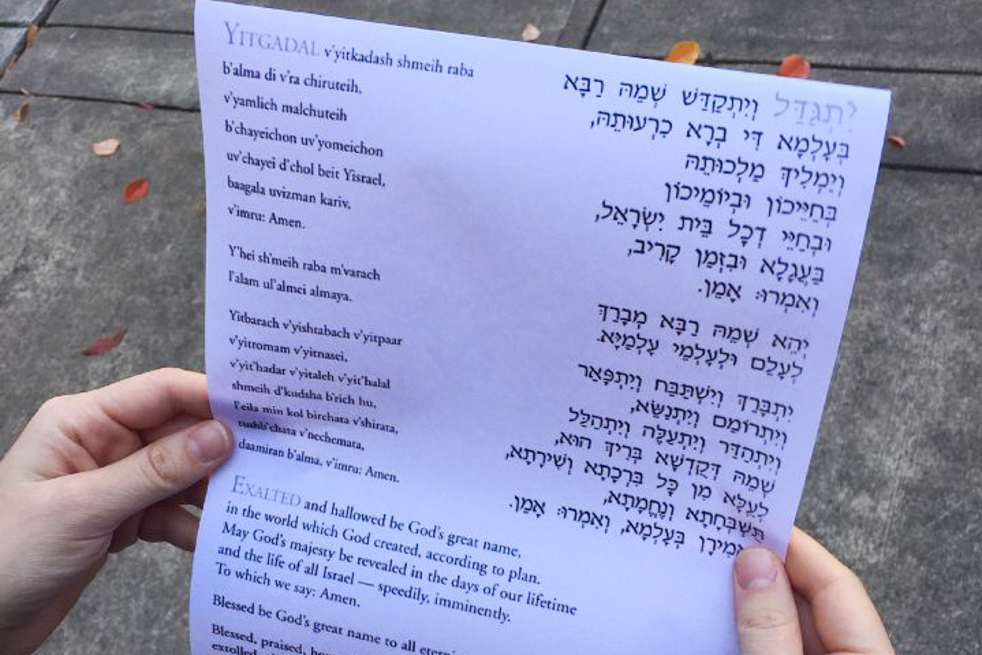 YITGADAL v'yitkadash shmeih raba
b'alma di v'ra chiruteih,
v'yamlich malchuteih
b'chayeichon uv'yomeichon
uv'chayei d'chol beit Yisrael,
baagala uvizman kariv,
v'imru: Amen.
Y'hei sh'meih raba m'varach
l'alam ul'almei almaya.
Yitbarach v'yishtabach v'yitpaar
v'yitromam v'yitnasei,
v'yit'hadar v'yitaleh v'yit'halal
shmeih d'kudsha b'rich hu,
l'eila min kol birchata v'shirata,
tushb'chata v'nechemata,
daamiran b'alma, v'imru: Amen.
יִתְגַּדַּל וְיִתְקַדַּשׁ שְׁמֵהּ רַבָּא
בְּעָלְמָא דִּי בְרָא כִרְעוּתֵהּ,
וְיַמְלִיךְ מַלְכוּתֵהּ
בְּחַיֵּיכוֹן וּבְיוֹמֵיכוֹן
וּבְחַיֵּי דְכָל בֵּית יִשְׂרָאֵל,
בַּעֲגָלָא וּבִזְמַן קָרִיב,
וְאִמְרוּ: אָמֵן.
יְהֵא שְׁמֵהּ רַבָּא מְבָרַךְ
לְעָלַם וּלְעָלְמֵי עָלְמַיָּא.
יִתְבָּרַךְ וְיִשְׁתַּבַּח וְיִתְפָּאַר
וְיִתְרוֹמַם וְיִתְנַשֵּׂא,
וְיִתְהַדַּר וְיִתְעַלֶּה וְיִתְהַלַּל
שְׁמֵהּ דְּקֻדְשָׁא בְּרִיךְ הוּא,
לְעֵלָּא מִן כָּל בִּרְכָתָא וְשִׁירָתָא,
תֻּשְׁבְּחָתָא וְנֶחֱמָתָא,
בְּעָלְמָא, וְאִמְרוּ: אָמֵן.
EXALTED and hallowed be God's great name,
in the world which God created, according to plan.
May God's majesty be revealed in the days of our lifetime
and the life of all Israel — speedily, imminently.
To which we say: Amen.
Blessed be God's great name to all
Blessed, praised,